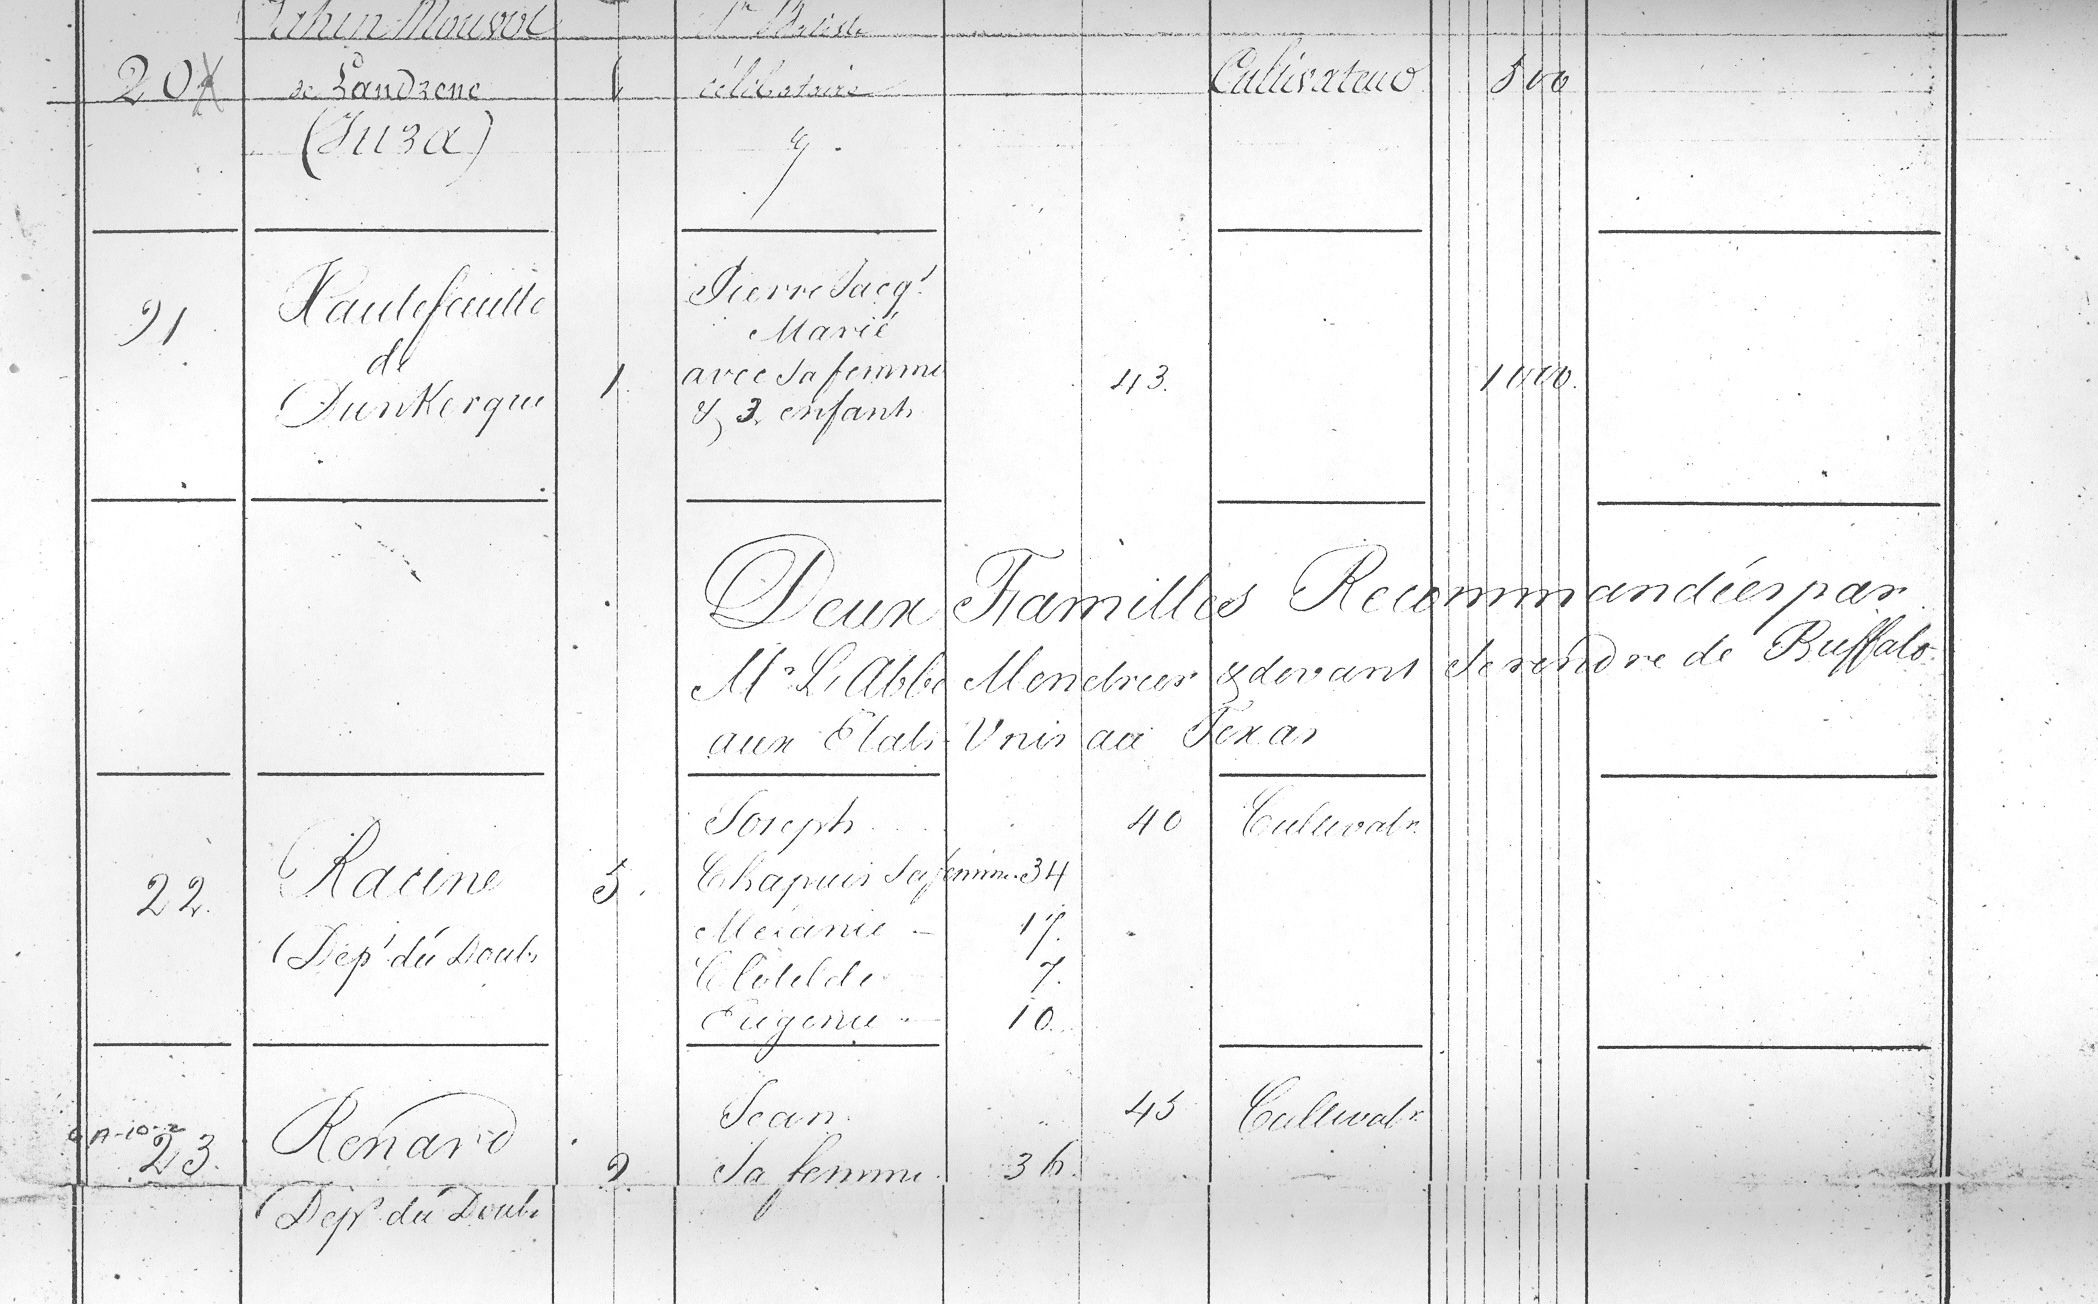 Jn Btiste
20 de Landrene 1 célibataire Cultivateur 500
(Juza) 
21 Hautefeuille Pierre Jacqs
Marié
de
Dunkerque 1 avec sa femme 43 1000.
& 3 enfants
Deux Familles Recommandées par
Mr L'Abbe & devant se rendre de Buffalo
aux Etats-Unis au Texas
Joseph 40 Cultivatr
22. Racine 5. Chapuis sa femme 34
Mélanie — 17.
Dépt du Doubs Clotilde 7.
Eugenie — 10.
Jean 45 Cultivatr
A-10-2
23. Renard 2 Sa femme 36.
Dépt du Doubs